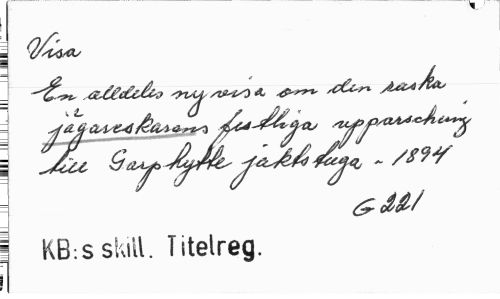 Visa
En alldeles ny visa om den raska
2
jägareskarans festliga upparsching
till Garphytte jaktstuga - 1894
G 221
KB:s skill. Titelreg.